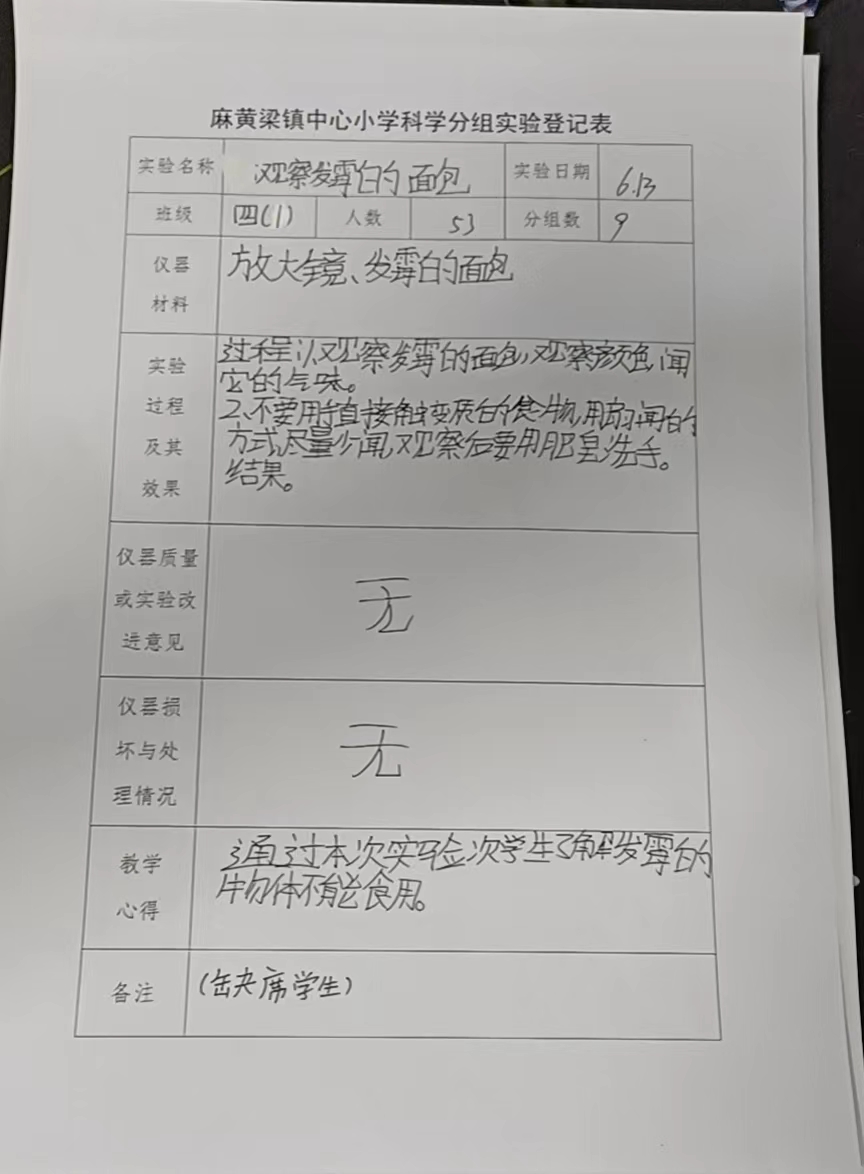 麻黄梁镇中心小学科学分组实验登记表
实验名称 观察发霉的面包 实验日期 6.13
班级 四(1) 人数 53 分组数 9
仪器
材料
放大镜、发霉的面包
实验
过程
及其
效果
过程:1、观察发霉的面包,观察颜色,闻
它的气味。
2、不要用手直接触变质的食物,用扇闻的
方式,尽量少闻,观察后要用肥皂洗手。
结果。
仪器质量
或实验改
进意见
无
仪器损
坏与处
理情况
无
教学
心得
通过本次实验次学生了解发霉的
物体不能食用。
备注 (缺席学生)